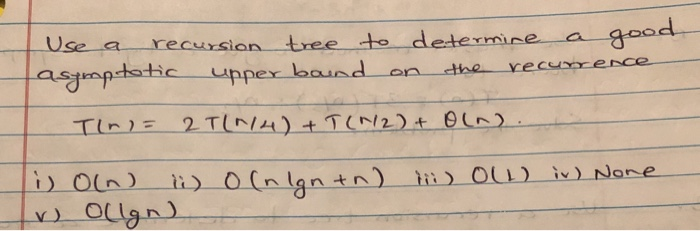 Use a recursion tree to determine a good
asymptotic upper bound on the recurrence
T(n) = 2T(n/4) + T(n/2) + θ(n).
i) O(n) ii) O(nlgn+n) iii) O(1) iv) None
v) O(lgn)